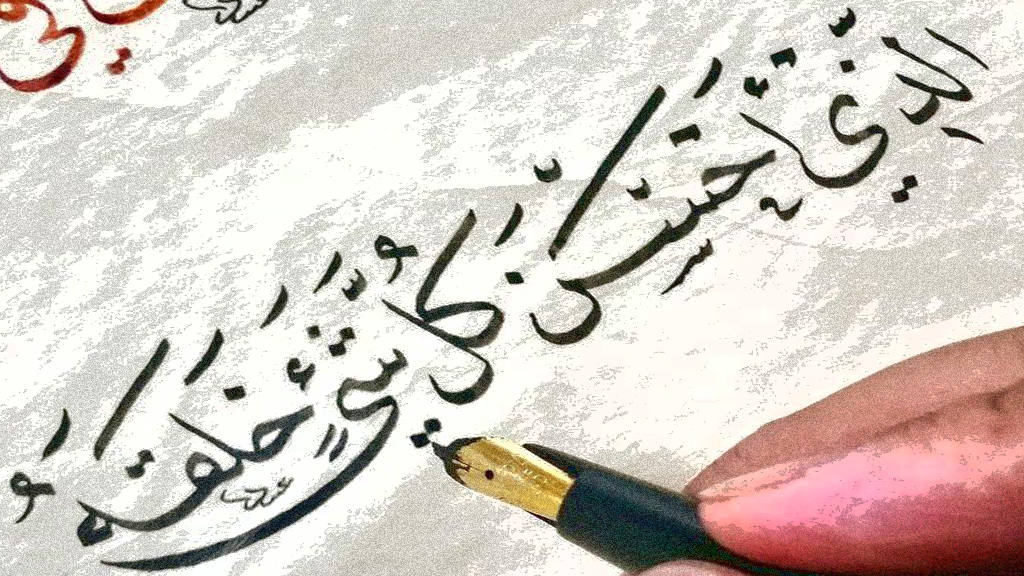 الذي أحسن كل شيء خلقه